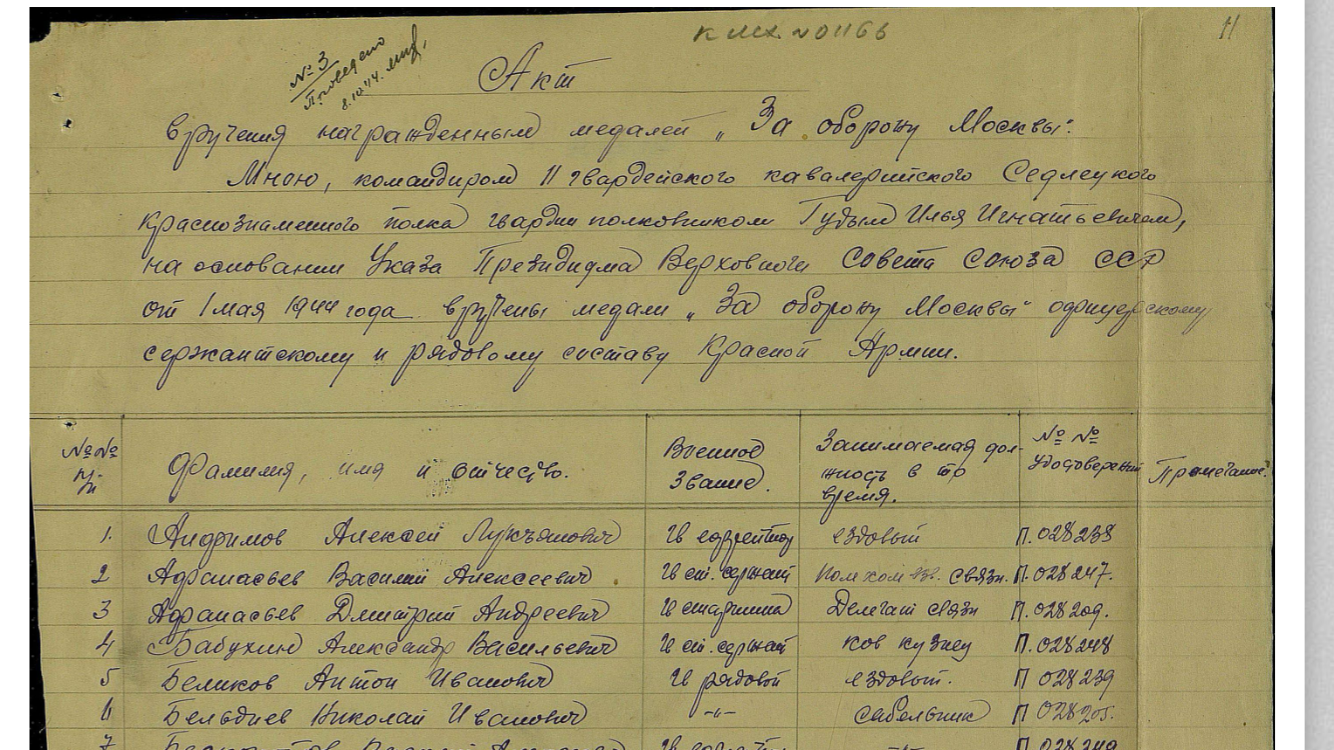 КМХ №01166
11
№ 3
Проведено
8.10.44.
Акт
вручения награжденным медалей „За оборону Москвы".
Мною, командиром 11 гвардейского кавалерийского Седлецкого
Краснознаменного полка гвардии полковником Гудым Илья Игнатьевичем,
на основании Указа Президиума Верховного Совета Союза ССР
от 1 мая 1944 года вручены медали „За оборону Москвы" офицерскому
сержантскому и рядовому составу Красной Армии.
№№ п/п Фамилия, имя и отчество. Военное звание. Занимаемая должность в то время. №№ удостоверений Примечание.
1. Анфимов Алексей Лукъянович Гв ефрейтор ездовый П. 028238
2 Афанасьев Василий Алексеевич Гв ст. сержант Пом ком взв. связи. П. 028247.
3 Афанасьев Дмитрий Андреевич Гв старшина Делегат связи П. 028209.
4 Бабухин Александр Васильевич Гв ст. сержант ков кузнец П. 028248
5 Беликов Антон Иванович Гв рядовой ездовый. П 028239
6 Бельдиев Николай Иванович -„- сабельник П 028205.
7 Гв ефрейтор -„- П 028249